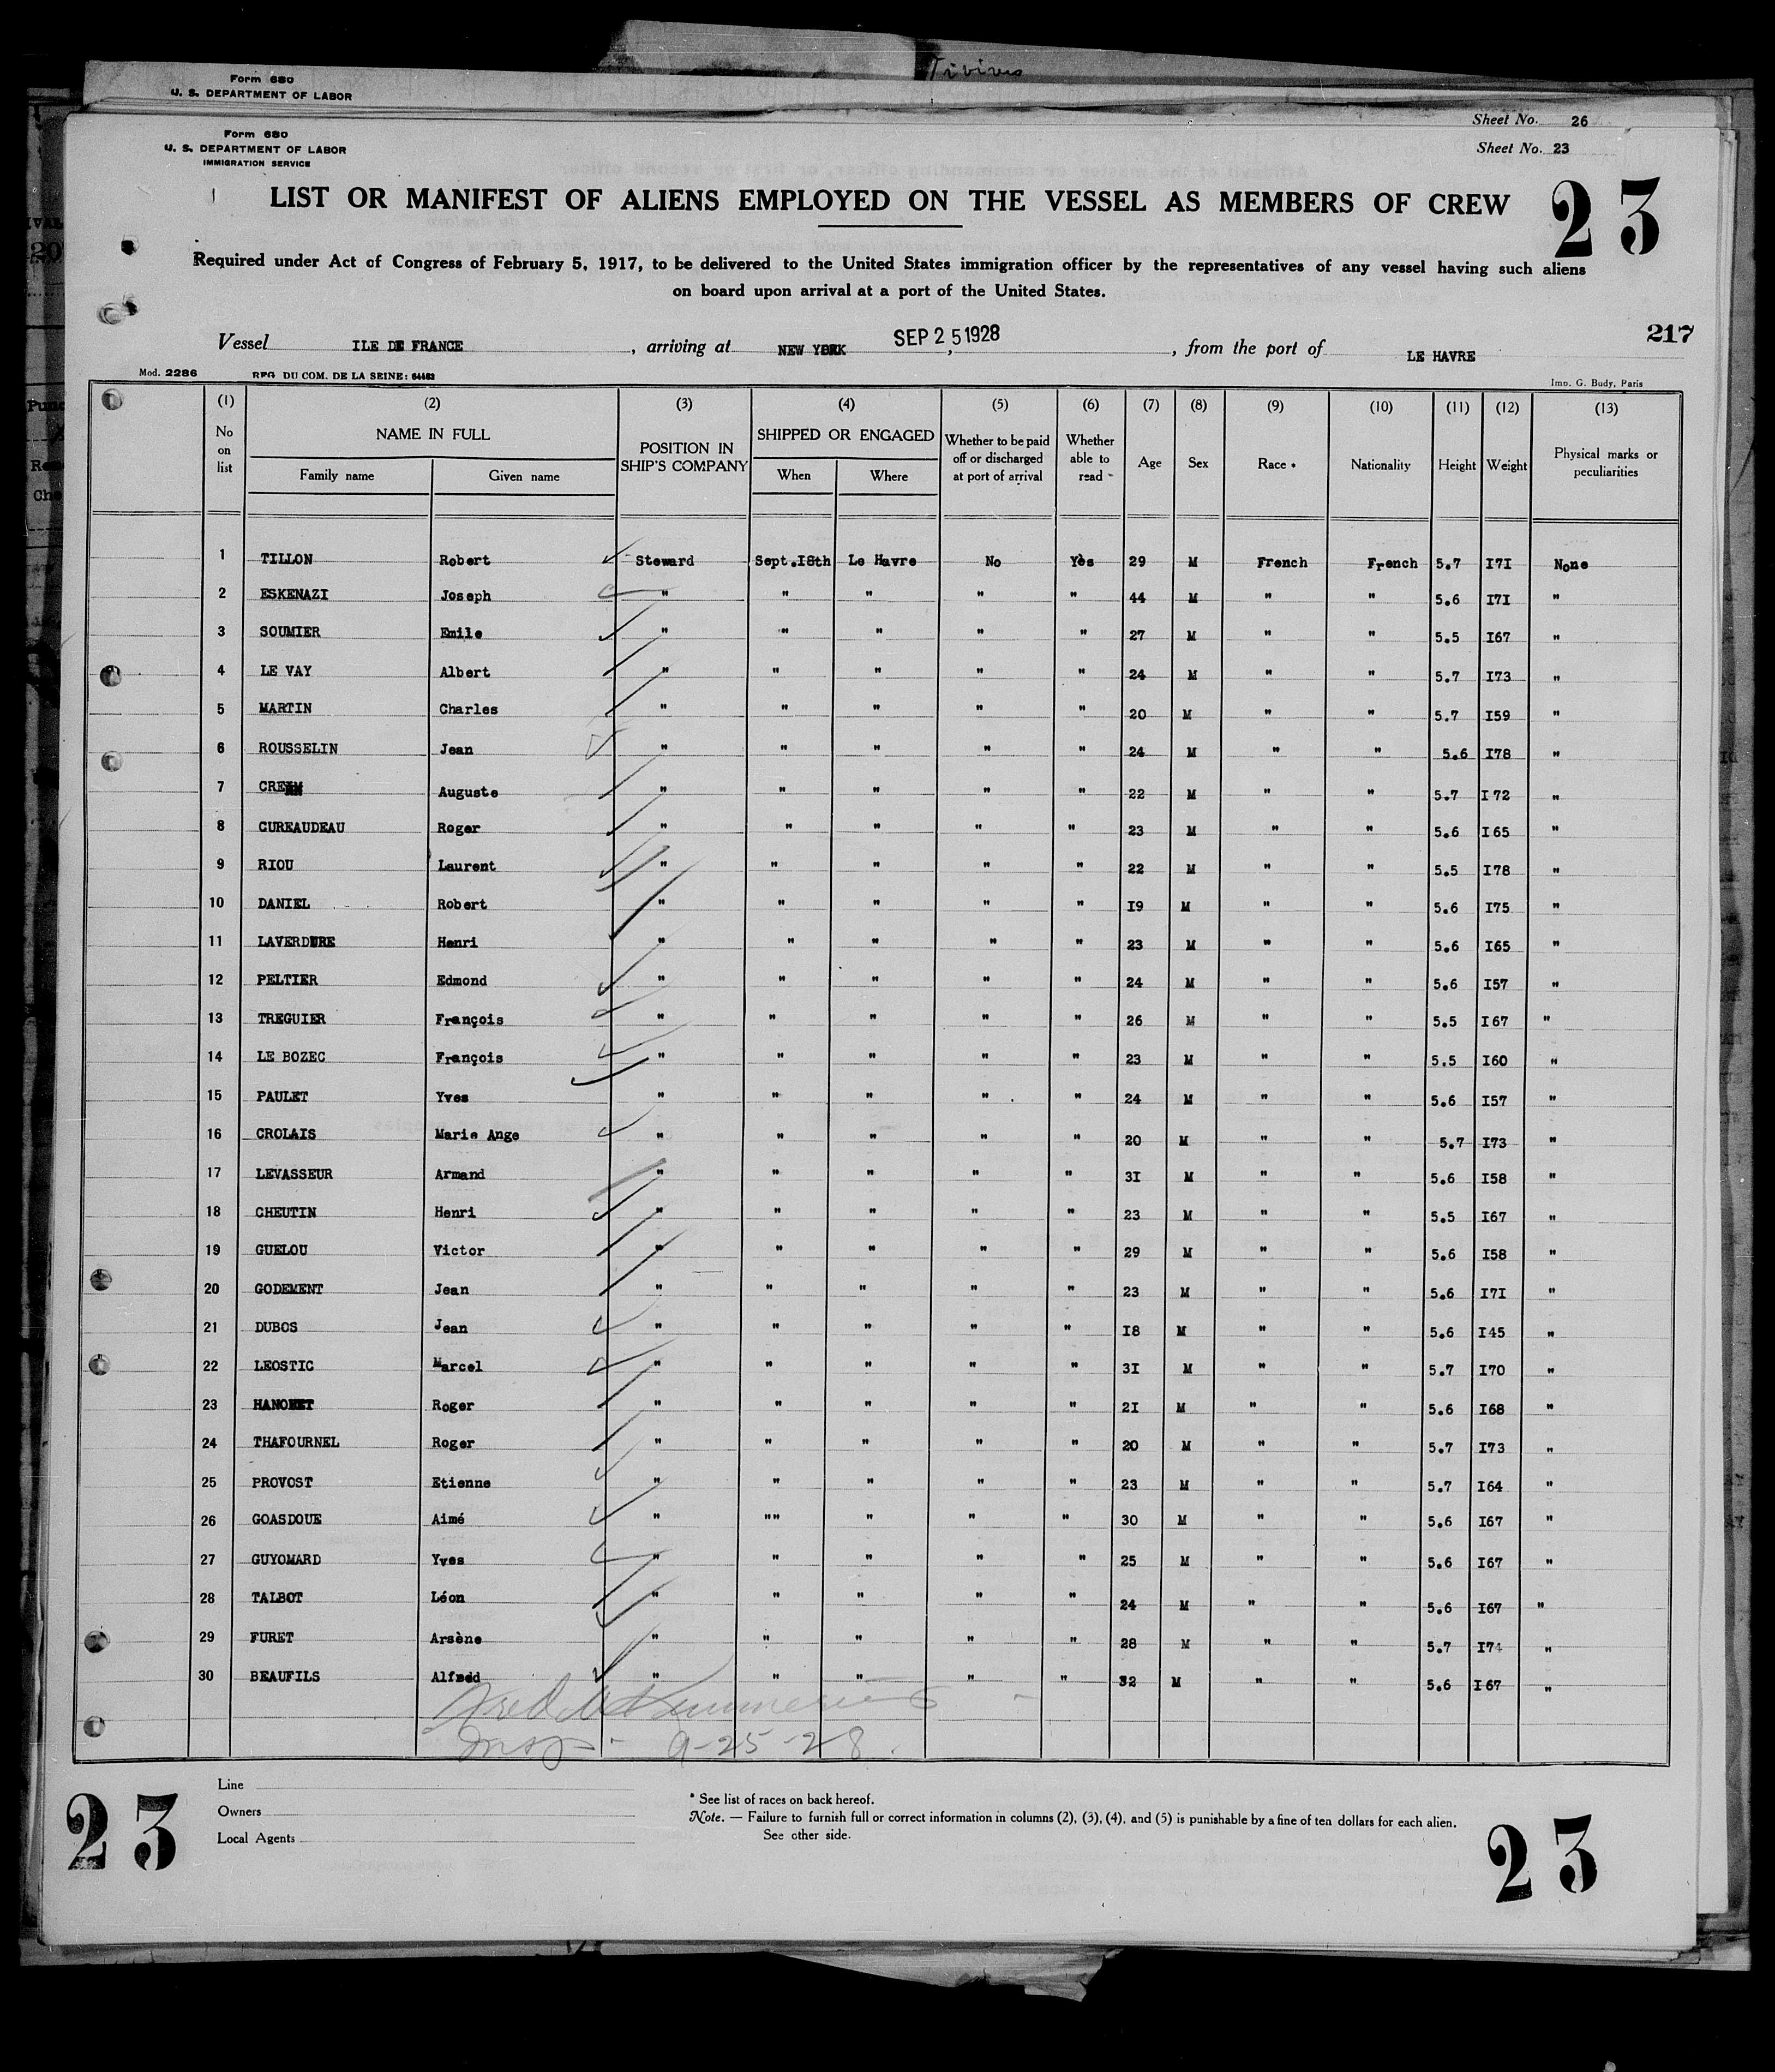 Form 680
U. S. DEPARTMENT OF LABOR
Sheet No. 26
Form 680
U. S. DEPARTMENT OF LABOR
IMMIGRATION SERVICE
Sheet No. 23
LIST OR MANIFEST OF ALIENS EMPLOYED ON THE VESSEL AS MEMBERS OF CREW
23
Required under Act of Congress of February 5, 1917, to be delivered to the United States immigration officer by the representatives of any vessel having such aliens
on board upon arrival at a port of the United States.
217
Vessel ILE DE FRANCE, arriving at NEW YORK SEP 25 1928, from the port of LE HAVRE
Mod. 2286 REG. DU COM. DE LA SEINE: 64483 Imp. G. Budy, Paris
(1) (2) (3) (4) (5) (6) (7) (8) (9) (10) (11) (12) (13)
No on list NAME IN FULL Family name Given name POSITION IN SHIP'S COMPANY SHIPPED OR ENGAGED When Where Whether to be paid off or discharged at port of arrival Whether able to read Age Sex Race * Nationality Height Weight Physical marks or peculiarities
1 TILLON Robert Steward Sept.I8th Le Havre No Yès 29 M French French 5.7 I7I None
2 ESKENAZI Joseph " " " " " 44 M " " 5.6 I7I "
3 SOUMIER Emile " " " " " 27 M " " 5.5 I67 "
4 LE VAY Albert " " " " " 24 M " " 5.7 I73 "
5 MARTIN Charles " " " " " 20 M " " 5.7 I59 "
6 ROUSSELIN Jean " " " " " 24 M " " 5.6 I78 "
7 Auguste " " " " " 22 M " " 5.7 I72 "
8 CUREAUDEAU Roger " " " " " 23 M " " 5.6 I65 "
9 RIOU Laurent " " " " " 22 M " " 5.5 I78 "
10 DANIEL Robert " " " " " I9 M " " 5.6 I75 "
11 LAVERDURE Henri " " " " " 23 M " " 5.6 I65 "
12 PELTIER Edmond " " " " " 24 M " " 5.6 I57 "
13 TREGUIER François " " " " " 26 M " " 5.5 I67 "
14 LE BOZEC François " " " " " 23 M " " 5.5 I60 "
15 PAULET Yves " " " " " 24 M " " 5.6 I57 "
16 CROLAIS Marie Ange " " " " " 20 M " " 5.7 I73 "
17 LEVASSEUR Armand " " " " " 3I M " " 5.6 I58 "
18 CHEUTIN Henri " " " " " 23 M " " 5.5 I67 "
19 GUELOU Victor " " " " " 29 M " " 5.6 I58 "
20 GODEMENT Jean " " " " " 23 M " " 5.6 I7I "
21 DUBOS Jean " " " " " I8 M " " 5.6 I45 "
22 LEOSTIC Marcel " " " " " 3I M " " 5.7 I70 "
23 Roger " " " " " 2I M " " 5.6 I68 "
24 THAFOURNEL Roger " " " " " 20 M " " 5.7 I73 "
25 PROVOST Etienne " " " " " 23 M " " 5.7 I64 "
26 GOASDOUE Aimé " "" " " " 30 M " " 5.6 I67 "
27 GUYOMARD Yves " " " " " 25 M " " 5.6 I67 "
28 TALBOT Léon " " " " " 24 M " " 5.6 I67 "
29 FURET Arsène " " " " " 28 M " " 5.7 I74 "
30 BEAUFILS Alfred " " " " " 32 M " " 5.6 I67 "
Insp - 9-25-28.
Line
Owners
Local Agents
* See list of races on back hereof.
Note. — Failure to furnish full or correct information in columns (2), (3), (4), and (5) is punishable by a fine of ten dollars for each alien.
See other side.
23
23